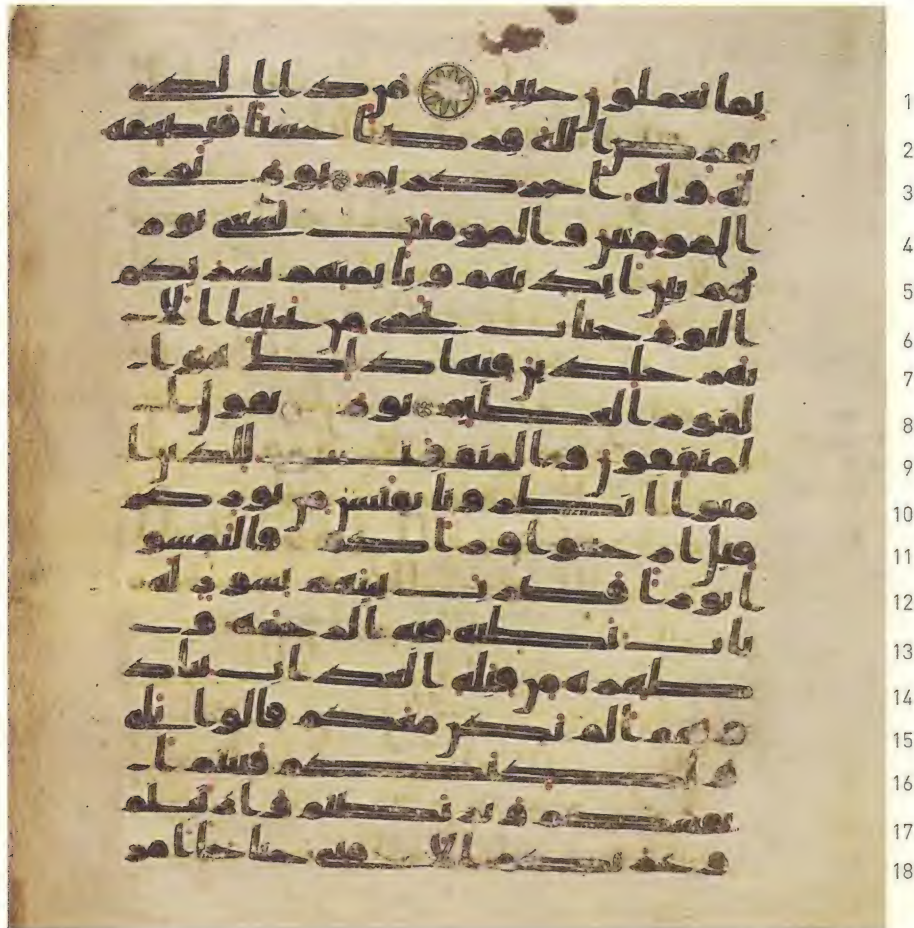 بما تعملون خبير من ذا الذي 1
يقرض الله قرضا حسنا فيضعفه 2
له وله اجر كريم يوم ترى 3
المومنين والمومنت يسعى نور 4
هم بين ايديهم وبايمنهم بشريكم 5
اليوم جنات تجري من تحتها الا 6
نهر خلدين فيها ذلك هو ا 7
لفوز العظيم يوم يقول ا 8
لمنفقون والمنفقت للذين ا 9
منوا انظرونا نقتبس من نوركم 10
قيل ارجعوا وراكم فالتمسو 11
ا نورا فضرب بينهم بسور له 12
باب بطنه فيه الرحمة و 13
ظهره من قبله العذاب يناد 14
ونهم الم نكن معكم قالوا بلى 15
ولكنكم فتنتم ا 16
نفسكم وتربصتم وارتبتم 17
وغرتكم الاماني حتى جا امر 18